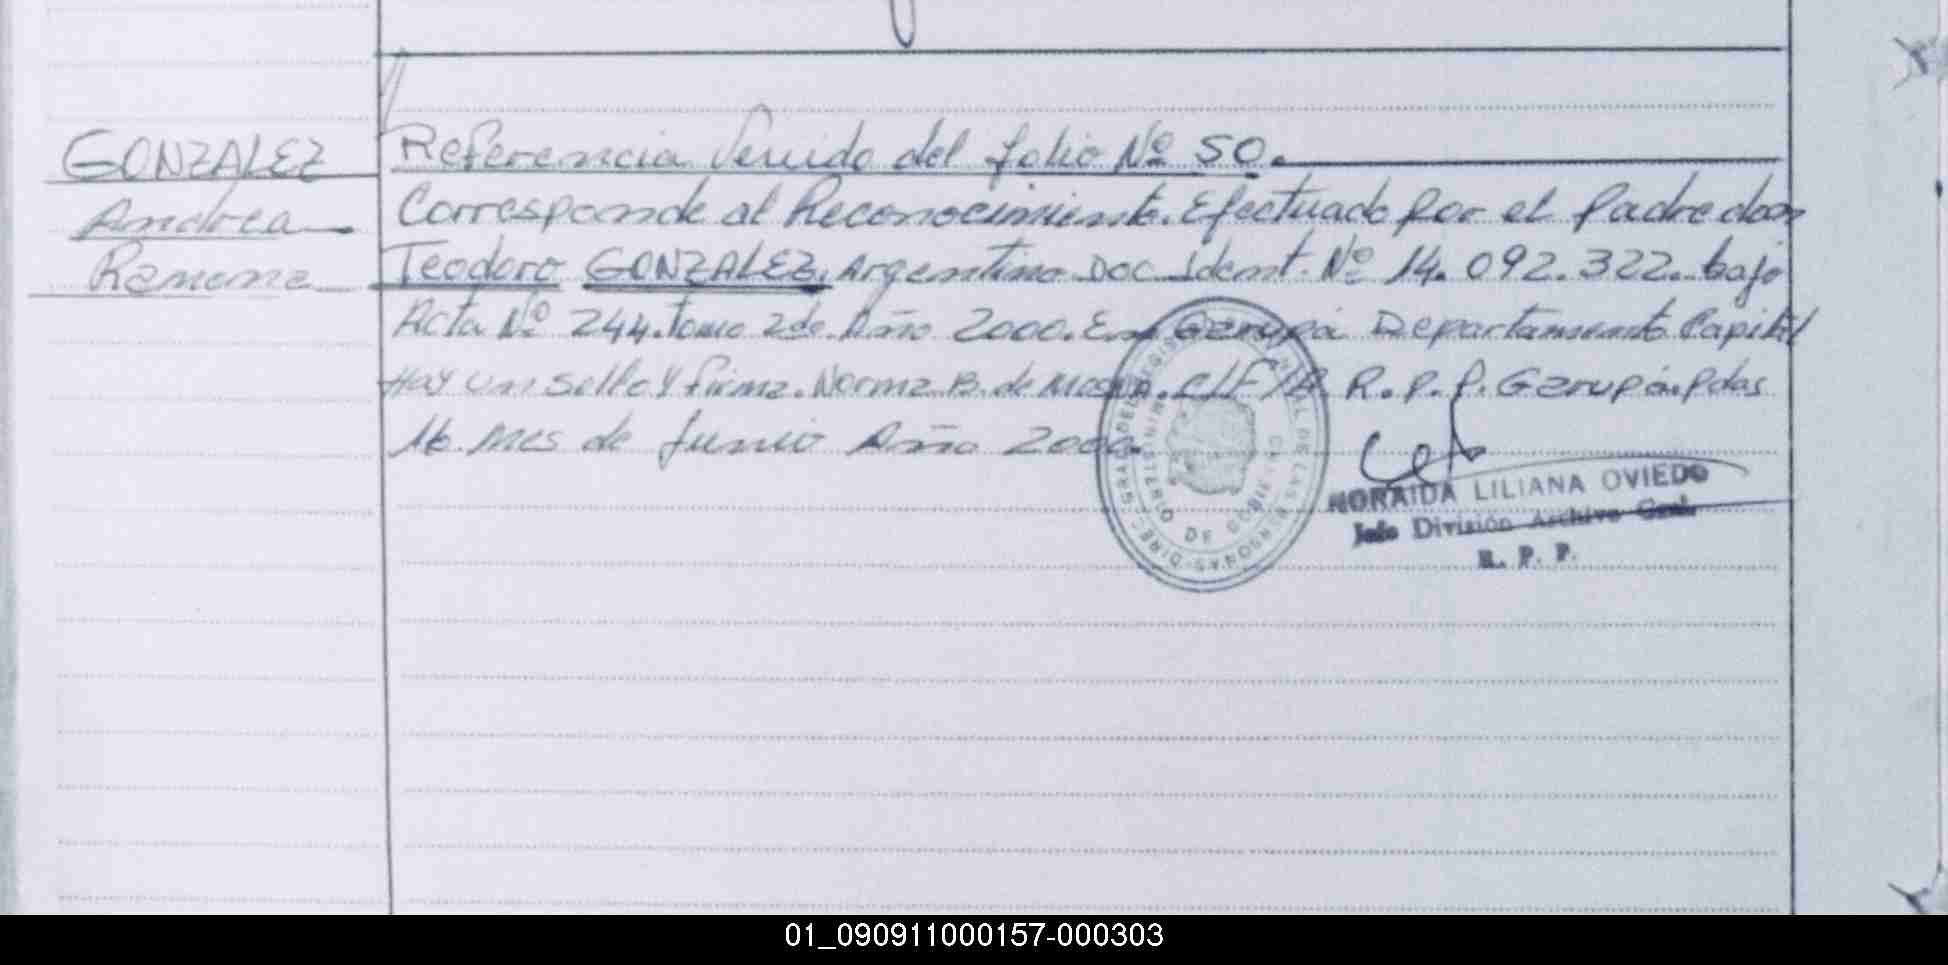 GONZALEZ
Andrea
Ramona
Referencia Venida del folio Nº 50.
Corresponde al Reconocimiento. Efectuado por el padre don
Teodoro GONZALEZ, Argentino Doc Ident. Nº 14.092.322. bajo
Acta Nº 244. Tomo 2do. Año 2000. En Garupá Departamento Capital
Hay un sello y firma. Norma B. de R.P.P. Garupá. Pdas
16. Mes de Junio Año 2000.
DIREC. GRAL. DEL REGISTRO PROVINCIAL DE LAS PERSONAS
MINISTERIO DE GOBIERNO
NORAIDA LILIANA OVIEDO
Jefe División Archivo Gral.
R. P. P.
01_090911000157-000303